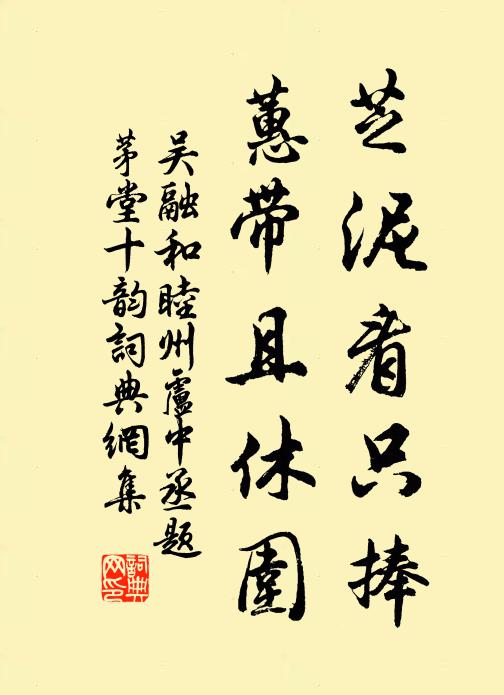 芝泥看只捧
蕙带且休圍
吴融和睦州盧中丞题
茅堂十韵詞典網集
詞典网印